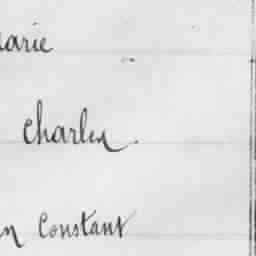 Marie
Charles.
n Constant